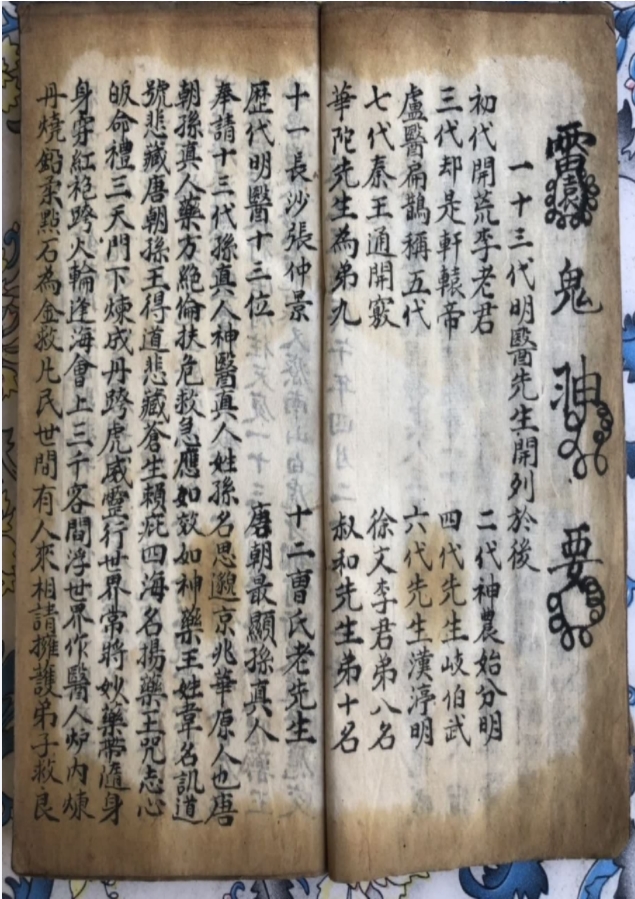 鬼
要
一十三代明醫先生開列於後
初代開荒李老君 二代神農始分明
三代却是軒轅帝 四代先生岐伯武
盧醫扁鵲稱五代 六代先生漢淳明
七代秦王通開竅 徐文李君弟八名
華陀先生為弟九 叔和先生弟十名
十一長沙張仲景 十二曹氏老先生
歷代明醫十三位 唐朝最顯孫真人
奉請十三代孫真人神醫真人姓孫名思邈京兆華原人也唐
朝孫真人藥方絶倫扶危救急應如效如神藥王姓韋名訊道
號悲藏唐朝孫王得道悲藏蒼生賴庇四海名揚藥王咒志心
皈命禮三天門下煉成丹跨虎威靈行世界常將妙藥帶隨身
身穿紅袍跨火輪逢海會上三千客間浮世界作醫人炉內煉
丹燒鉛汞點石為金救凡民世間有人來相請擁護弟子救良